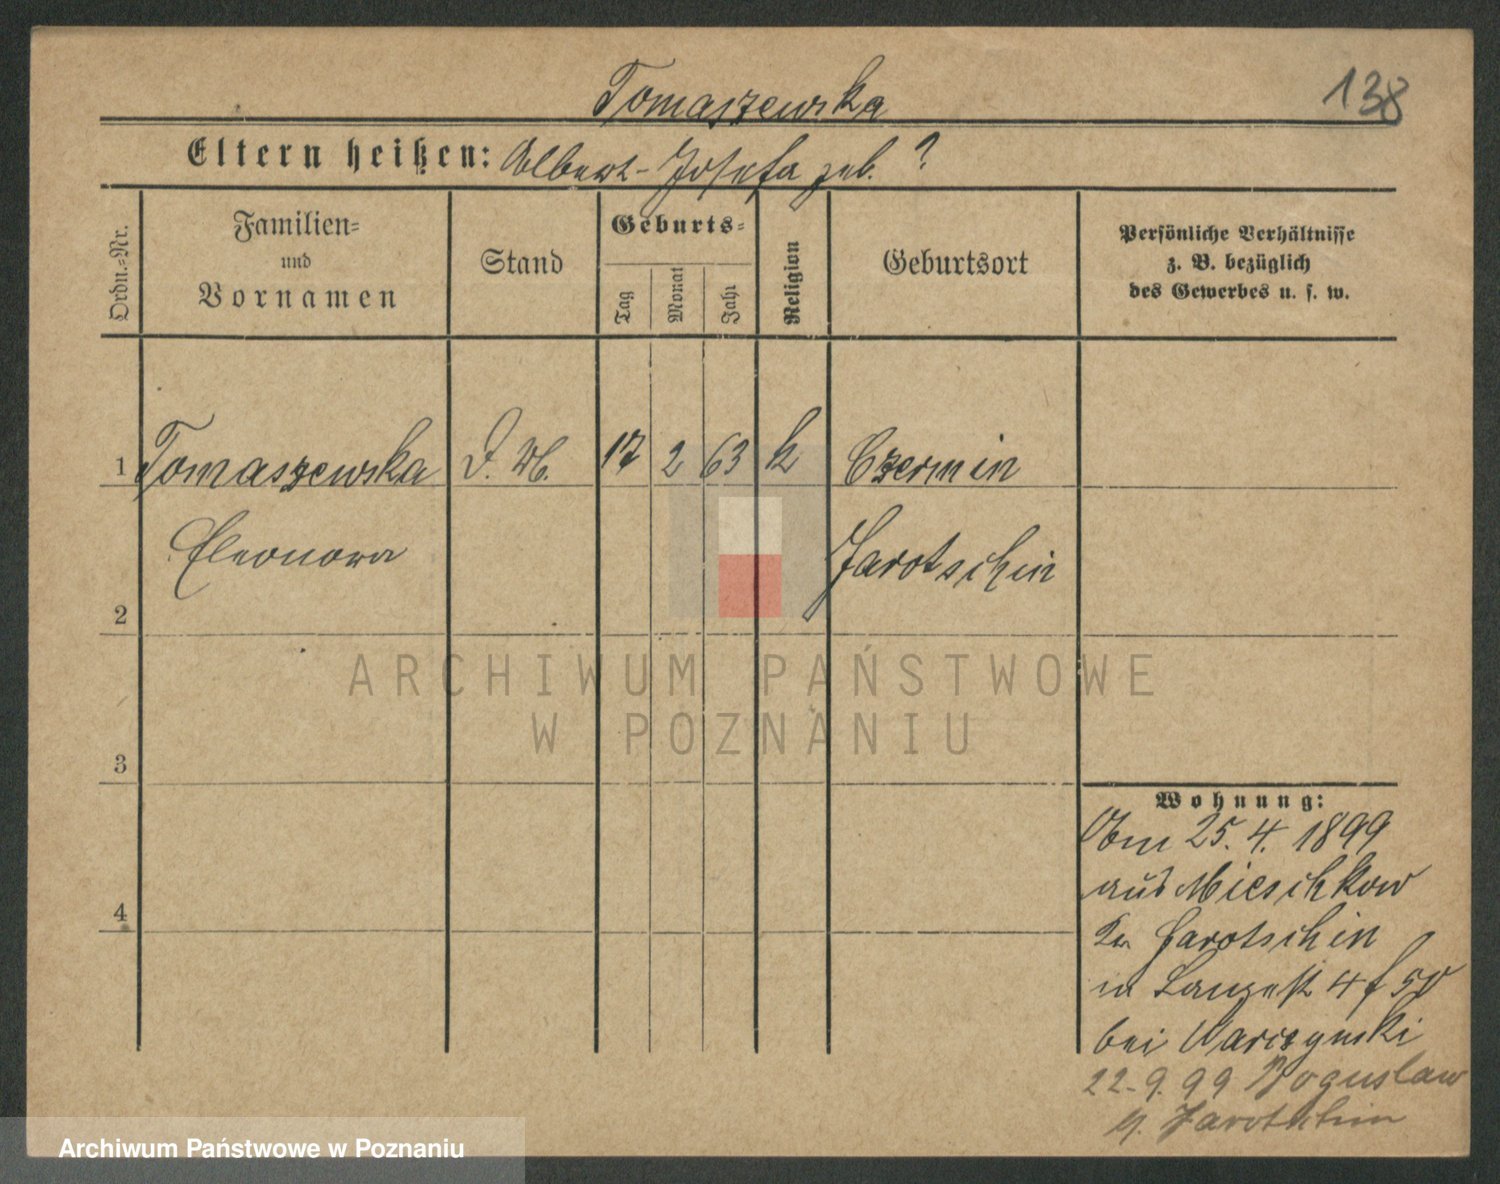 138
Tomaszewska
Eltern heißen: Albert - Josefa geb. ?
Ordn.-Nr.
Familien-
und
Vornamen
Stand
Geburts-
Tag
Monat
Jahr
Religion
Geburtsort
Persönliche Verhältnisse
z. B. bezüglich
des Gewerbes u. s. w.
1 Tomaszewska D. 17 2 63 k Czermin
Eleonora Jarotschin
2
ARCHIWUM PAŃSTWOWE
W POZNANIU
3
Wohnung:
Am 25. 4. 1899
aus Mieschkow
Kr. Jarotschin
in Langestr 4
bei
4
22.9.99 Boguslaw
Jarotschin
Archiwum Państwowe w Poznaniu